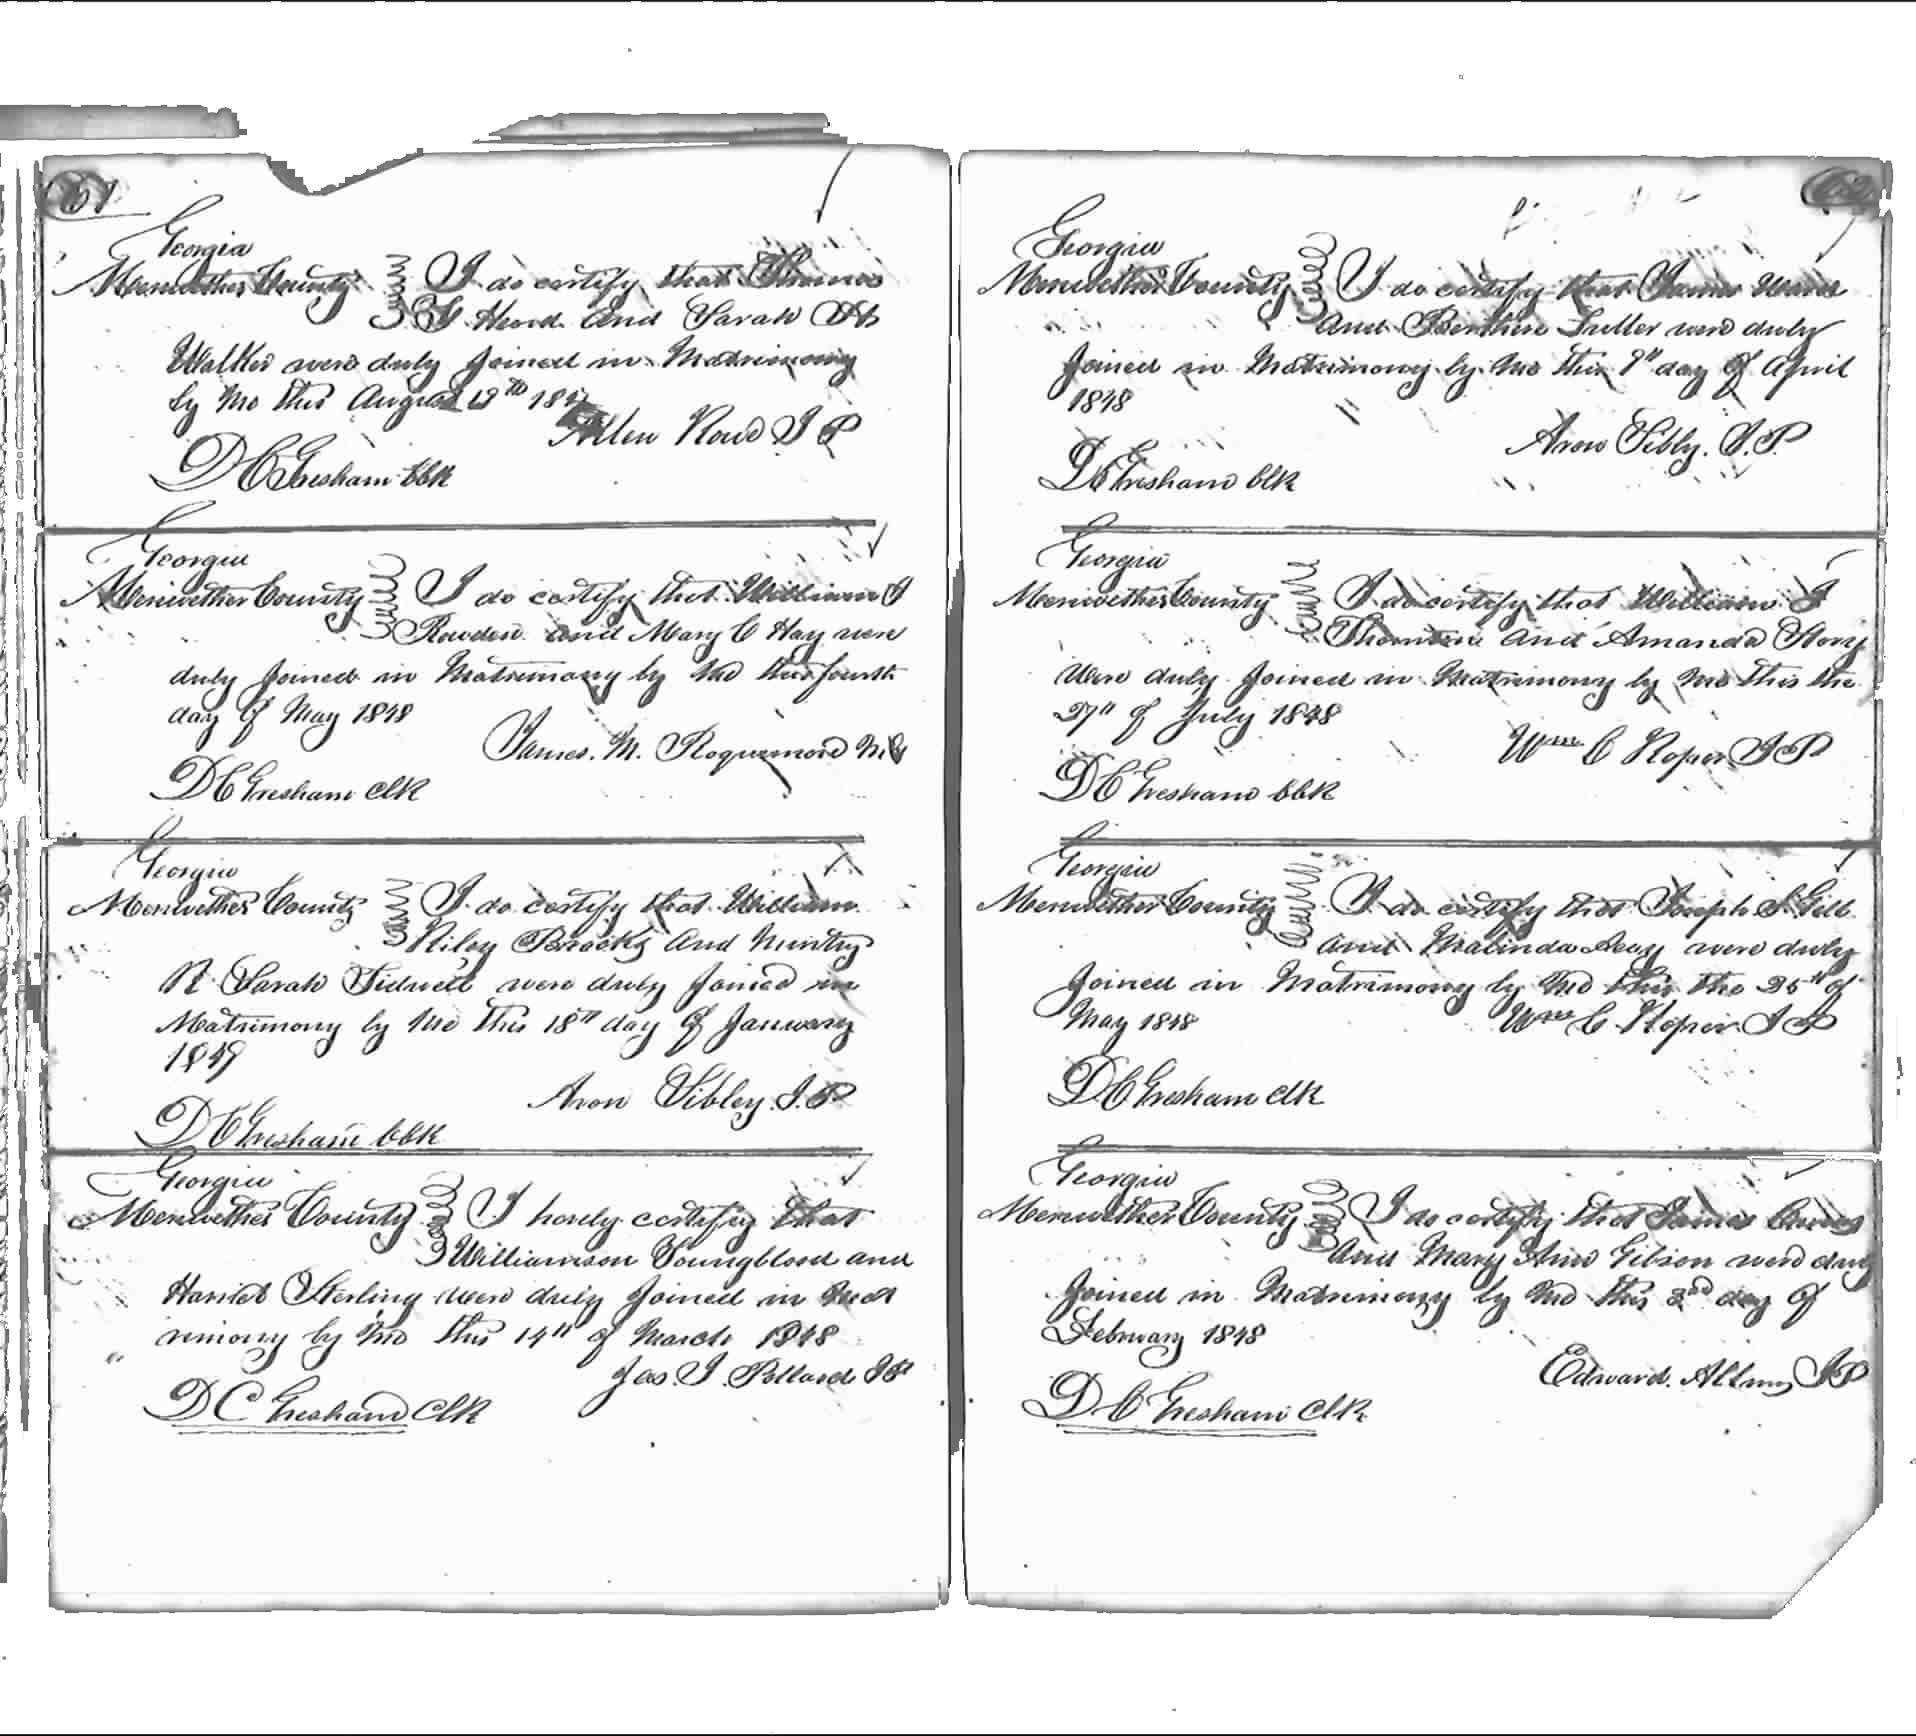 61
Georgia
Meriwether County I do certify that Thomas
G. Heard and Sarah
Walker were duly joined in Matrimony
by me this August
Allen Rowe J P
D C Gresham Clk
Georgia
Meriwether County I do certify that William J
Rowden and Mary C Hay were
duly joined in Matrimony by me this fourth
day of May 1848
James. M. Roquemore M.G
D C Gresham Clk
Georgia
Meriwether County I do certify that William
Riley Brooks and
R Sarah Tidwell were duly joined in
Matrimony by me this 18th day of January
1849
Aron Sibley. J. P
D C Gresham Clk
Georgia
Meriwether County I herely certify that
Williamson Youngblood and
Harriet Sterling were duly joined in Mat
rimony by me this 14th of March 1848
Jas. J. Pollard JP
D C Gresham Clk
62
Georgia
Meriwether County I do certify that James
and were duly
joined in Matrimony by me this day of April
1848
Aron Sibly. J. P.
D C Gresham Clk
Georgia
Meriwether County I do certify that William J
Thornton and Amanda Story
were duly joined in Matrimony by me this the
27th of July 1848
Wm C Roper J P
D C Gresham Clk
Georgia
Meriwether County I do certify that Joseph S. Gill
and Malinda were duly
joined in Matrimony by me this the 25th of
May 1848 Wm C. Roper J P
D C Gresham Clk
Georgia
Meriwether County I do certify that James
and Mary Ann Gibson were duly
joined in Matrimony by me this 3rd day of
February 1848
Edward. J P
D C Gresham Clk